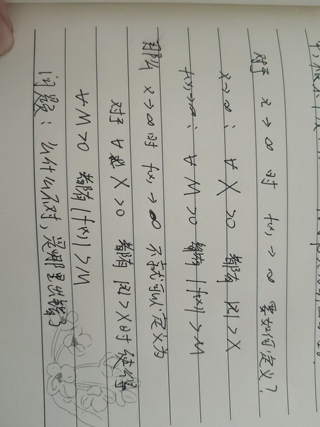 对于 x→∞ 时 f(x)→∞ 要如何定义?
x→∞: ∀X>0 都有 |x|>X
f(x)→∞: ∀M>0 都有 |f(x)|>M
那么 x→∞ 时 f(x)→∞ 不就可以定义为
对于 ∀ X>0 都有 |x|>X 时 使得
∀M>0 都有 |f(x)|>M
问题: 为什么不对,是哪里出错了